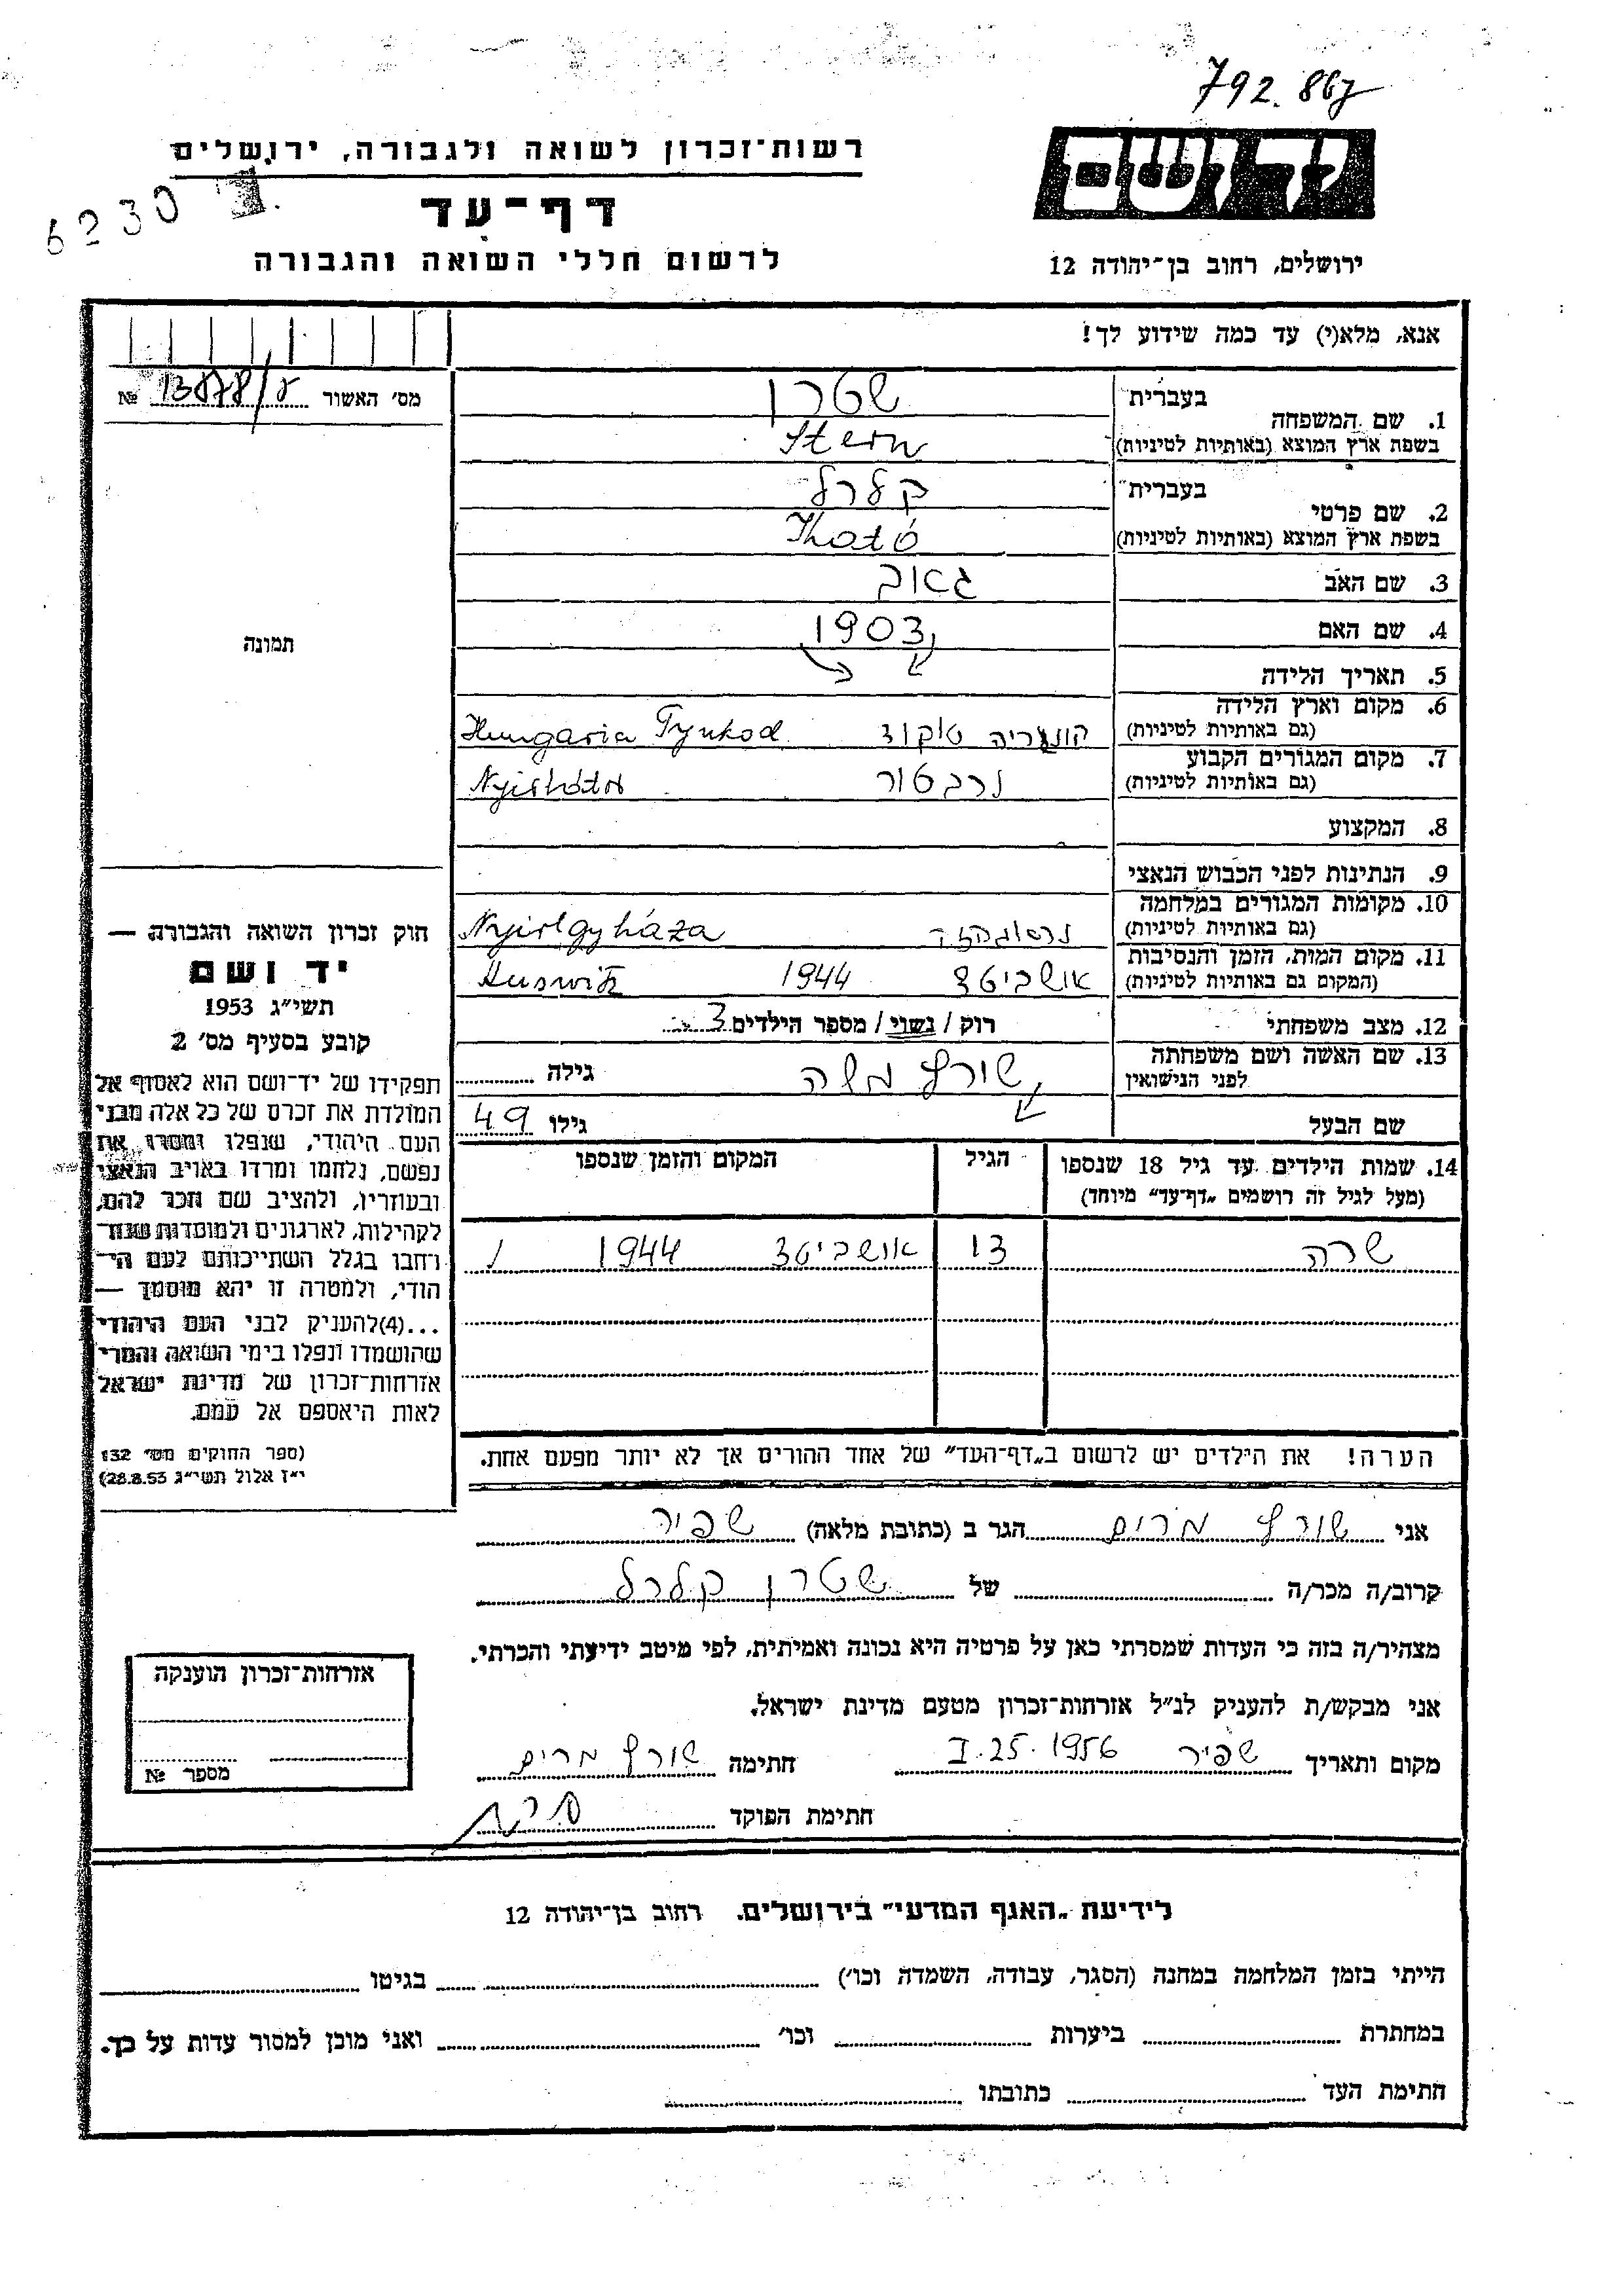 792.867
רשות־זכרון לשואה ולגבורה, ירושלים
6230
יד ושם
דף־עד
לרשום חללי השואה והגבורה
ירושלים, רחוב בן־יהודה 12
אנא, מלא(י) עד כמה שידוע לך!
מס' האשור № 13878/ע
1. שם המשפחה
בעברית שטרן
בשפת ארץ המוצא (באותיות לטיניות) Stern
2. שם פרטי
בעברית קלרל
בשפת ארץ המוצא (באותיות לטיניות) Kató
3. שם האב גאוב
4. שם האם 1903
5. תאריך הלידה
6. מקום וארץ הלידה
(גם באותיות לטיניות) הונגריה טוקוד Hungaria Tyukod
7. מקום המגורים הקבוע
(גם באותיות לטיניות) נרבטור Nyirbátor
8. המקצוע
9. הנתינות לפני הכבוש הנאצי
10. מקומות המגורים במלחמה
(גם באותיות לטיניות) Nyiregyháza
11. מקום המות, הזמן והנסיבות
(המקום גם באותיות לטיניות) אושביטצ 1944 Auswitz
12. מצב משפחתי רוק / נשוי / מספר הילדים 3
13. שם האשה ושם משפחתה
לפני הנישואין שורץ משה גילה
שם הבעל גילו 49
14. שמות הילדים עד גיל 18 שנספו
(מעל לגיל זה רושמים „דף־עד" מיוחד)
הגיל
המקום והזמן שנספו
שרה 13 אושביטצ 1944 /
הערה! את הילדים יש לרשום ב„דף־העד" של אחד ההורים אך לא יותר מפעם אחת.
תמונה
חוק זכרון השואה והגבורה —
יד ושם
תשי"ג 1953
קובע בסעיף מס' 2
תפקידו של יד־ושם הוא לאסוף אל
המולדת את זכרם של כל אלה מבני
העם היהודי, שנפלו ומסרו את
נפשם, נלחמו ומרדו באויב הנאצי
ובעוזריו, ולהציב שם וזכר להם,
לקהילות, לארגונים ולמוסדות שנח־
רחבו בגלל השתייכותם לעם הי־
הודי, ולמטרה זו יהא מוסמך —
...(4)להעניק לבני העם היהודי
שהושמדו ונפלו בימי השואה והמרי
אזרחות־זכרון של מדינת ישראל
לאות היאספם אל עמם.
(ספר החוקים מס' 132
י"ז אלול תשי"ג 28.8.53)
אני שורץ מרים הגר ב (כתובת מלאה) שפיר
קרוב/ה מכר/ה של שטרן קלרל
מצהיר/ה בזה כי העדות שמסרתי כאן על פרטיה היא נכונה ואמיתית, לפי מיטב ידיעתי והכרתי.
אני מבקש/ת להעניק לנ"ל אזרחות־זכרון מטעם מדינת ישראל.
מקום ותאריך שפיר I.25.1956 חתימה שורץ מרים
חתימת הפוקד
אזרחות־זכרון הוענקה
מספר №
לידיעת „האגף המדעי" בירושלים, רחוב בן־יהודה 12
הייתי בזמן המלחמה במחנה (הסגר, עבודה, השמדה וכו') בגיטו
במחתרת ביערות וכו' ואני מוכן למסור עדות על כך.
חתימת העד כתובתו